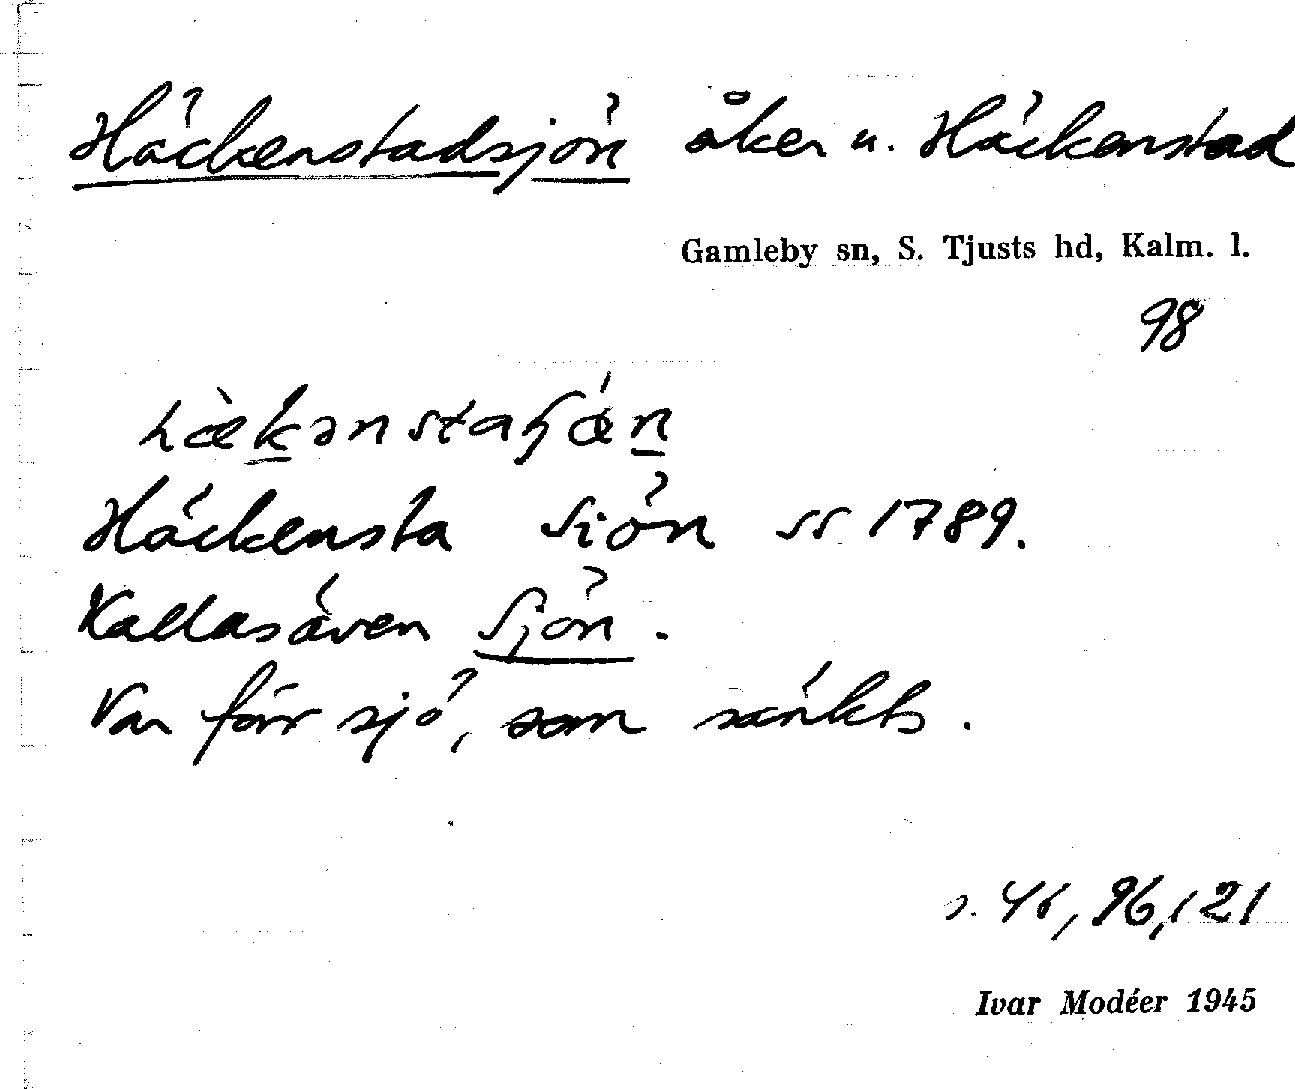 Häckenstadsjön åker u. Häckenstad
Gamleby sn, S. Tjusts hd, Kalm. l.
98
Häckensta Siön ss 1789.
Kallas även Sjön.
Var förr sjö, som sänkts.
s. 46, 96, 121
Ivar Modéer 1945